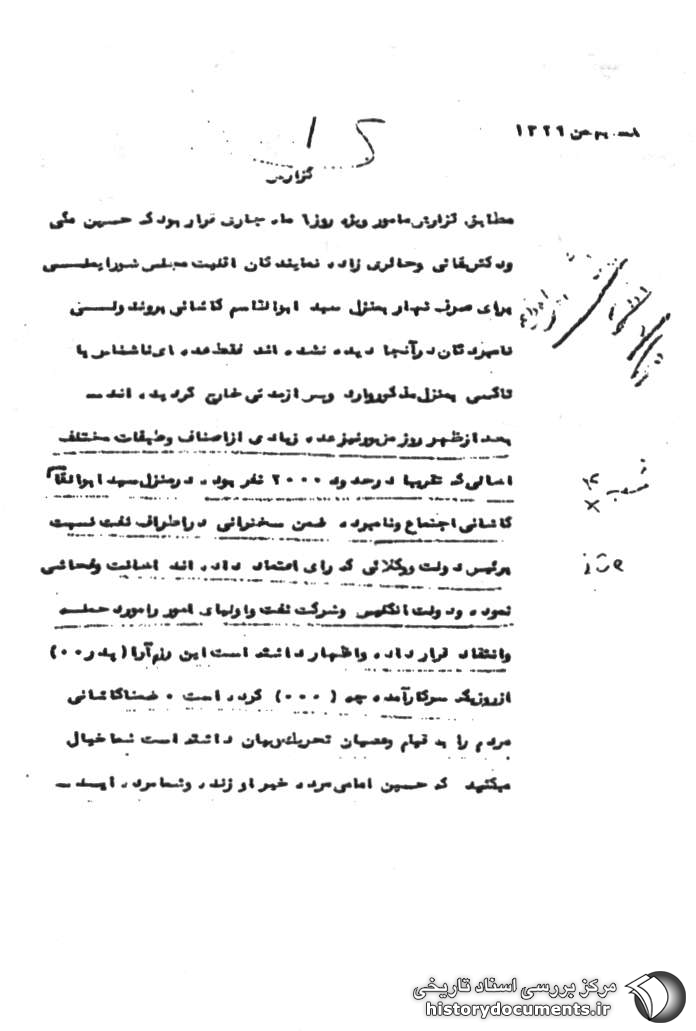 بهمن ۱۳۲۹
گزارش
مطابق گزارش مامور ویژه روز ۶ ماه جاری قرار بود که حسین مکی
و دکتر بقائی و حائری زاده نمایندگان اقلیت مجلس شورایملی
برای صرف نهار بمنزل سید ابوالقاسم کاشانی بروند ولی
نامبردگان در آنجا دیده نشده اند فقط عده ای ناشناس با
تاکسی بمنزل مذکور وارد و پس از مدتی خارج گردیده اند ــ
بعد از ظهر روز مزبور نیز عده زیادی از اصناف و طبقات مختلف
اهالی که تقریبا در حدود ۲۰۰۰ نفر بوده در منزل سید ابوالقاسم
کاشانی اجتماع و نامبرده ضمن سخنرانی در اطراف نفت نسبت
برئیس دولت و وکلائی که رای اعتماد داده اند اهانت و فحاشی
نموده و دولت انگلیس و شرکت نفت و اولیای امور را مورد حمله
و انتقاد قرار داده و اظهار داشته است این رزم آرا (پدر ۰۰)
از روزیکه سر کار آمده چه (۰۰۰) کرده است ۰ ضمنا کاشانی
مردم را به قیام و عصیان تحریک و بیان داشته است شما خیال
میکنید که حسین امامی مرده خیر او زنده و شما مرده اید ــ
شعبه ۴
مرکز بررسی اسناد تاریخی
historydocuments.ir